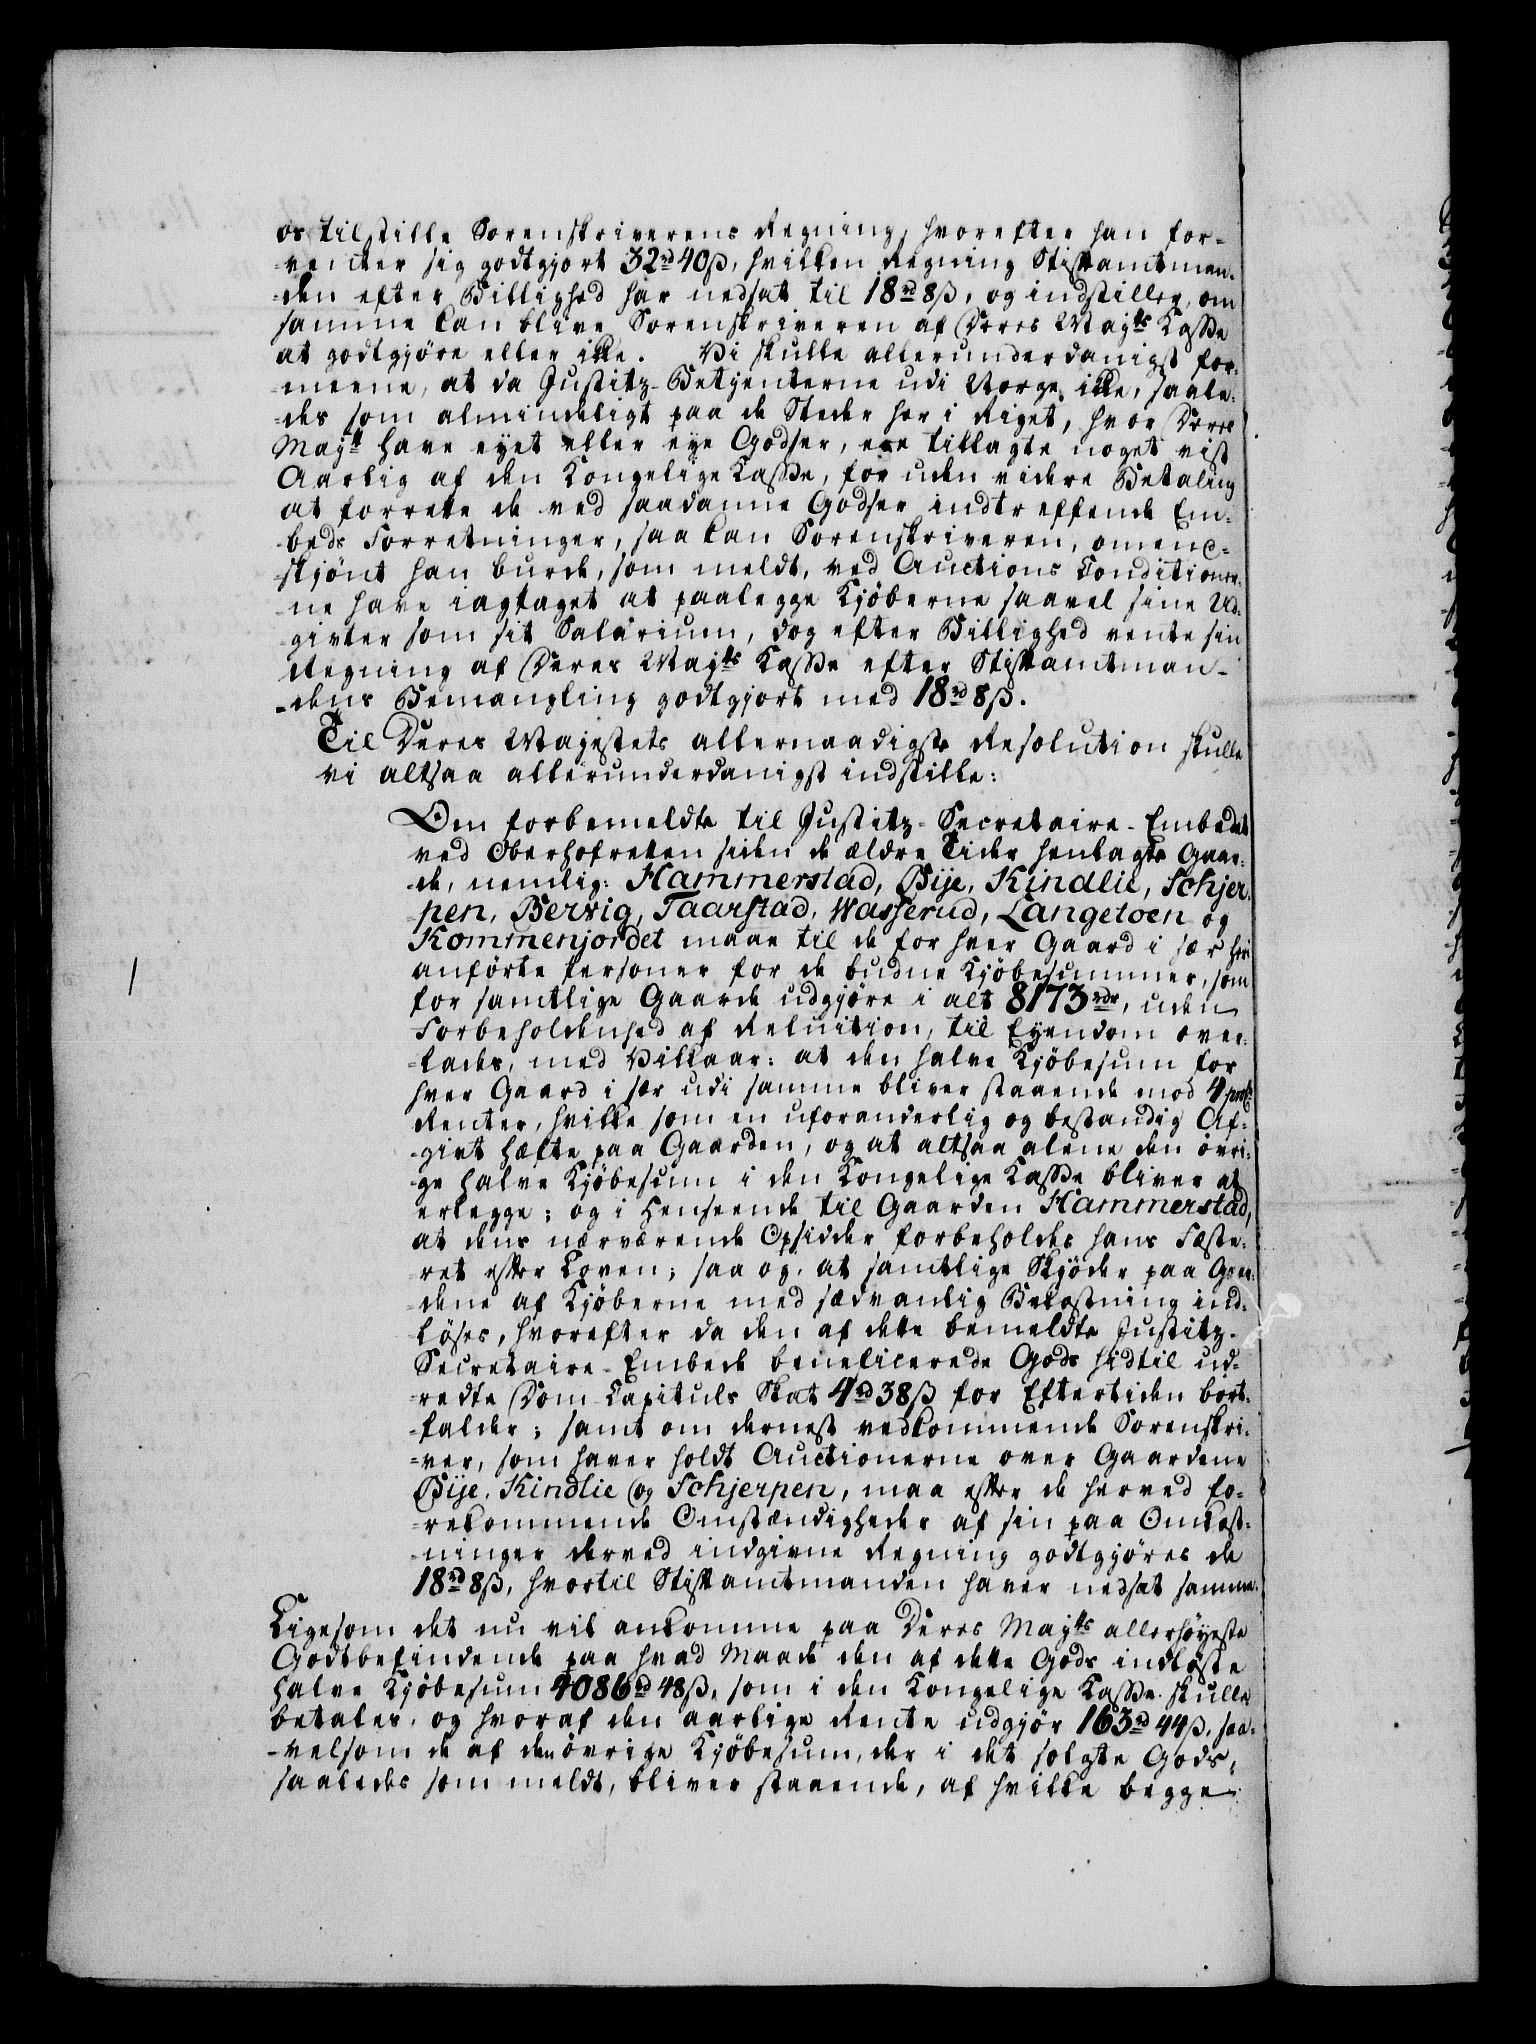 os tilstille Sorenskriverens Regning, hvorefter han for-
venter sig godtgjort 32rd 40ß, hvilken Regning Stiftamtman-
-den efter Billighed har nedsat til 18rd 8ß, og indstiller, om
samme kan blive Sorenskriveren af Deres Mayts Kasse
at godtgjöre eller ikke. Vi skulle allerunderdanigst for-
meene, at da Justitz-Betjenterne udi Norge ikke, saale-
-des som almindeligt paa de Steder her i Riget, hvor Deres
Mayt have eyet eller eye Godser, ere tillagte noget vist
Aarlig af den Kongelige Kasse, for uden videre Betaling
at forrette de ved saadanne Godser indtreffende Em-
-beds Forretninger, saa kan Sorenskriveren, omend-
-skjönt han burde, som meldt, ved Auctions Conditioner-
-ne have iagtaget at paalegge Kjöberne saavel sine Ud-
givter som sit Salarium, dog efter Billighed vente sin
Regning af Deres Mayts Kasse efter Stiftamtman-
-dens Bemangling godtgjort med 18rd 8ß.
Til Deres Majestets allernaadigste Resolution skulle
vi altsaa allerunderdanigst indstille:
Om forbemeldte til Justitz-Secretaire-Embedet
ved Oberhofretten siden de ældre Tider henlagte Gaar-
-de, nemlig: Hammerstad, Bije, Kindlie, Schjer-
-pen, Bervig, Taarstad, Wasserud, Langetoen og
Kommenjordet maae til de for hver Gaard i sær her
anförte Personer for de budne Kjöbesummer, som
for samtlige Gaarde udgjöre i alt 8173 rdr, uden
Forbeholdenhed af Reluition, til Eyendom over-
-lades, med Vilkaar: at den halve Kjöbesum for
hver Gaard i sær udi samme bliver staaende mod 4 proCt
Renter, hvilke som en uforanderlig og bestandig Af-
-givt hæfte paa Gaarden, og at altsaa alene den övri-
-ge halve Kjöbesum i den Kongelige Kasse bliver at
erlegge; og i Henseende til Gaarden Hammerstad,
at dens nærværende Opsidder forbeholdes hans Fæste-
-ret efter Loven; saa og, at samtlige Skjöder paa Gaar-
-dene af Kjöberne med sædvanlig Bekostning ind-
-löses, hvorefter da den af dette bemeldte Justitz-
Secretaire-Embede beneficerede Gods hidtil ud-
-redte Dom Capituls Skat 4rd 38ß for Eftertiden bort-
-falder; samt om dernest vedkommende Sorenskri-
-ver, som haver holdt Auctionerne over Gaardene
Bije, Kindlie og Schjerpen, maa efter de herved fo-
-rekommende Omstændigheder af sin paa Omkost-
-ninger derved indgivne Regning godtgjöres de
18rd 8ß, hvortil Stiftamtmanden haver nedsat samme.
Ligesom det nu vil ankomme paa Deres Mayts allerhöyeste
Godtbefindende paa hvad Maade den af dette Gods indlöste
halve Kjöbesum 4086rd 48ß, som i den Kongelige Kasse skulle
betales, og hvoraf den aarlige Rente udgjör 163rd 44ß, saa-
-velsom de af den övrige Kjöbesum, der i det solgte Gods,
saaledes som meldt, bliver staaende, af hvilke begge